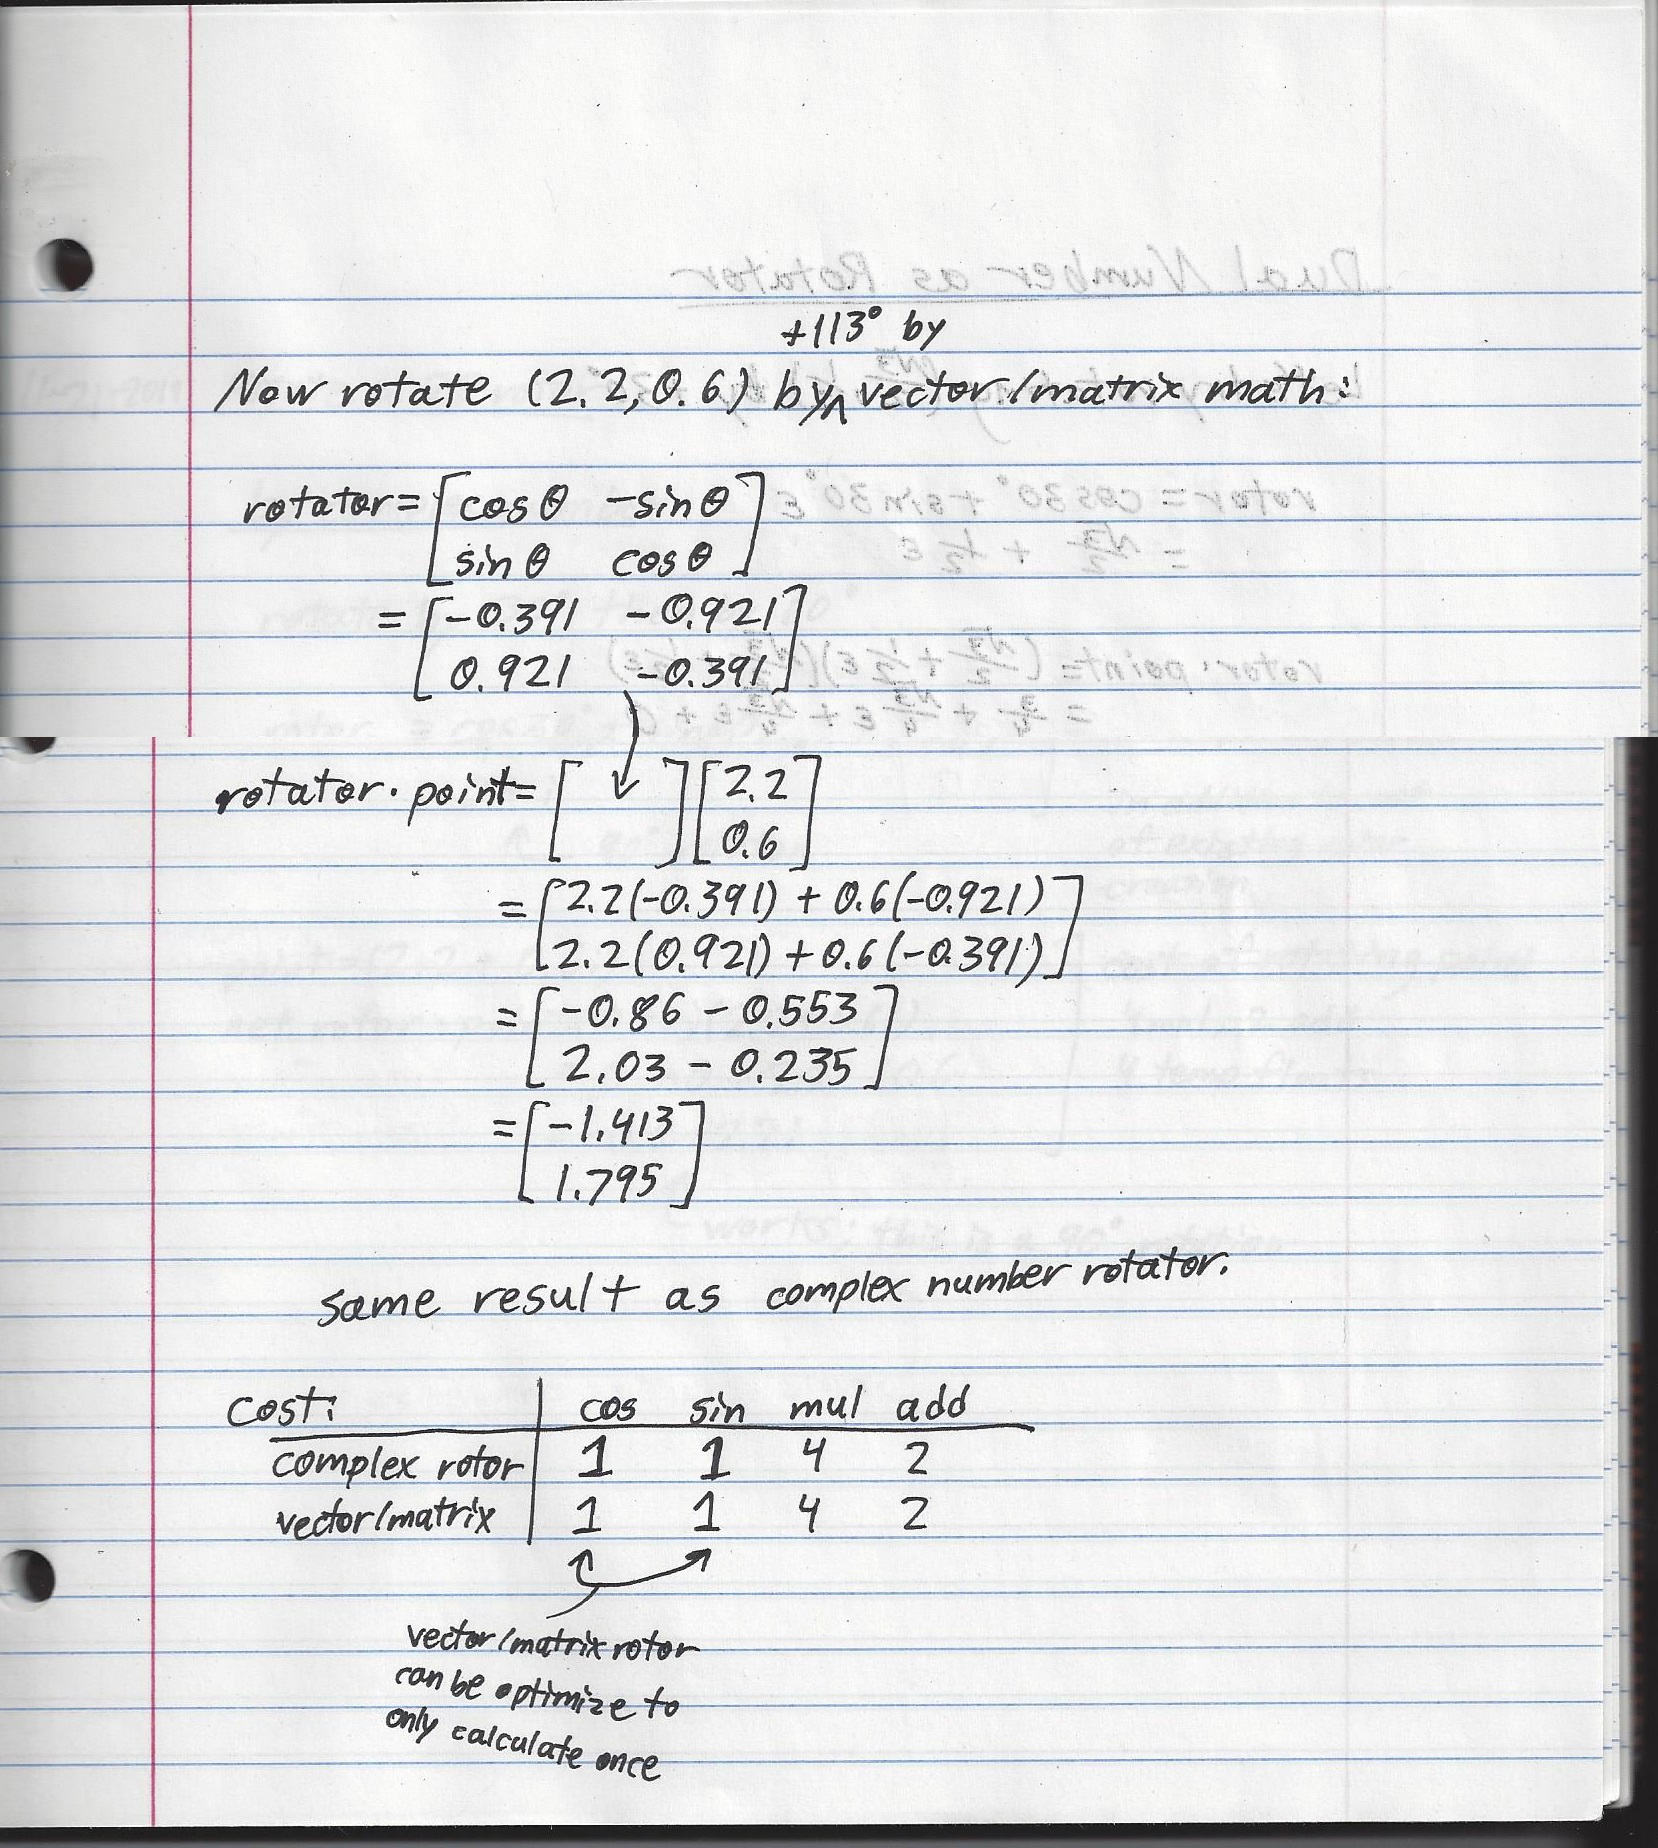 +113° by
Now rotate (2.2, 0.6) by^ vector/matrix math:
rotator = [cosθ -sinθ]
[sinθ cosθ]
= [-0.391 -0.921]
[0.921 -0.391]
rotator · point = [ ↓ ] [2.2]
[0.6]
= [2.2(-0.391) + 0.6(-0.921)]
[2.2(0.921) + 0.6(-0.391)]
= [-0.86 - 0.553]
[2.03 - 0.235]
= [-1.413]
[1.795]
same result as complex number rotator.
cost: cos sin mul add
complex rotor 1 1 4 2
vector/matrix 1 1 4 2
vector/matrix rotor
can be optimize to
only calculate once